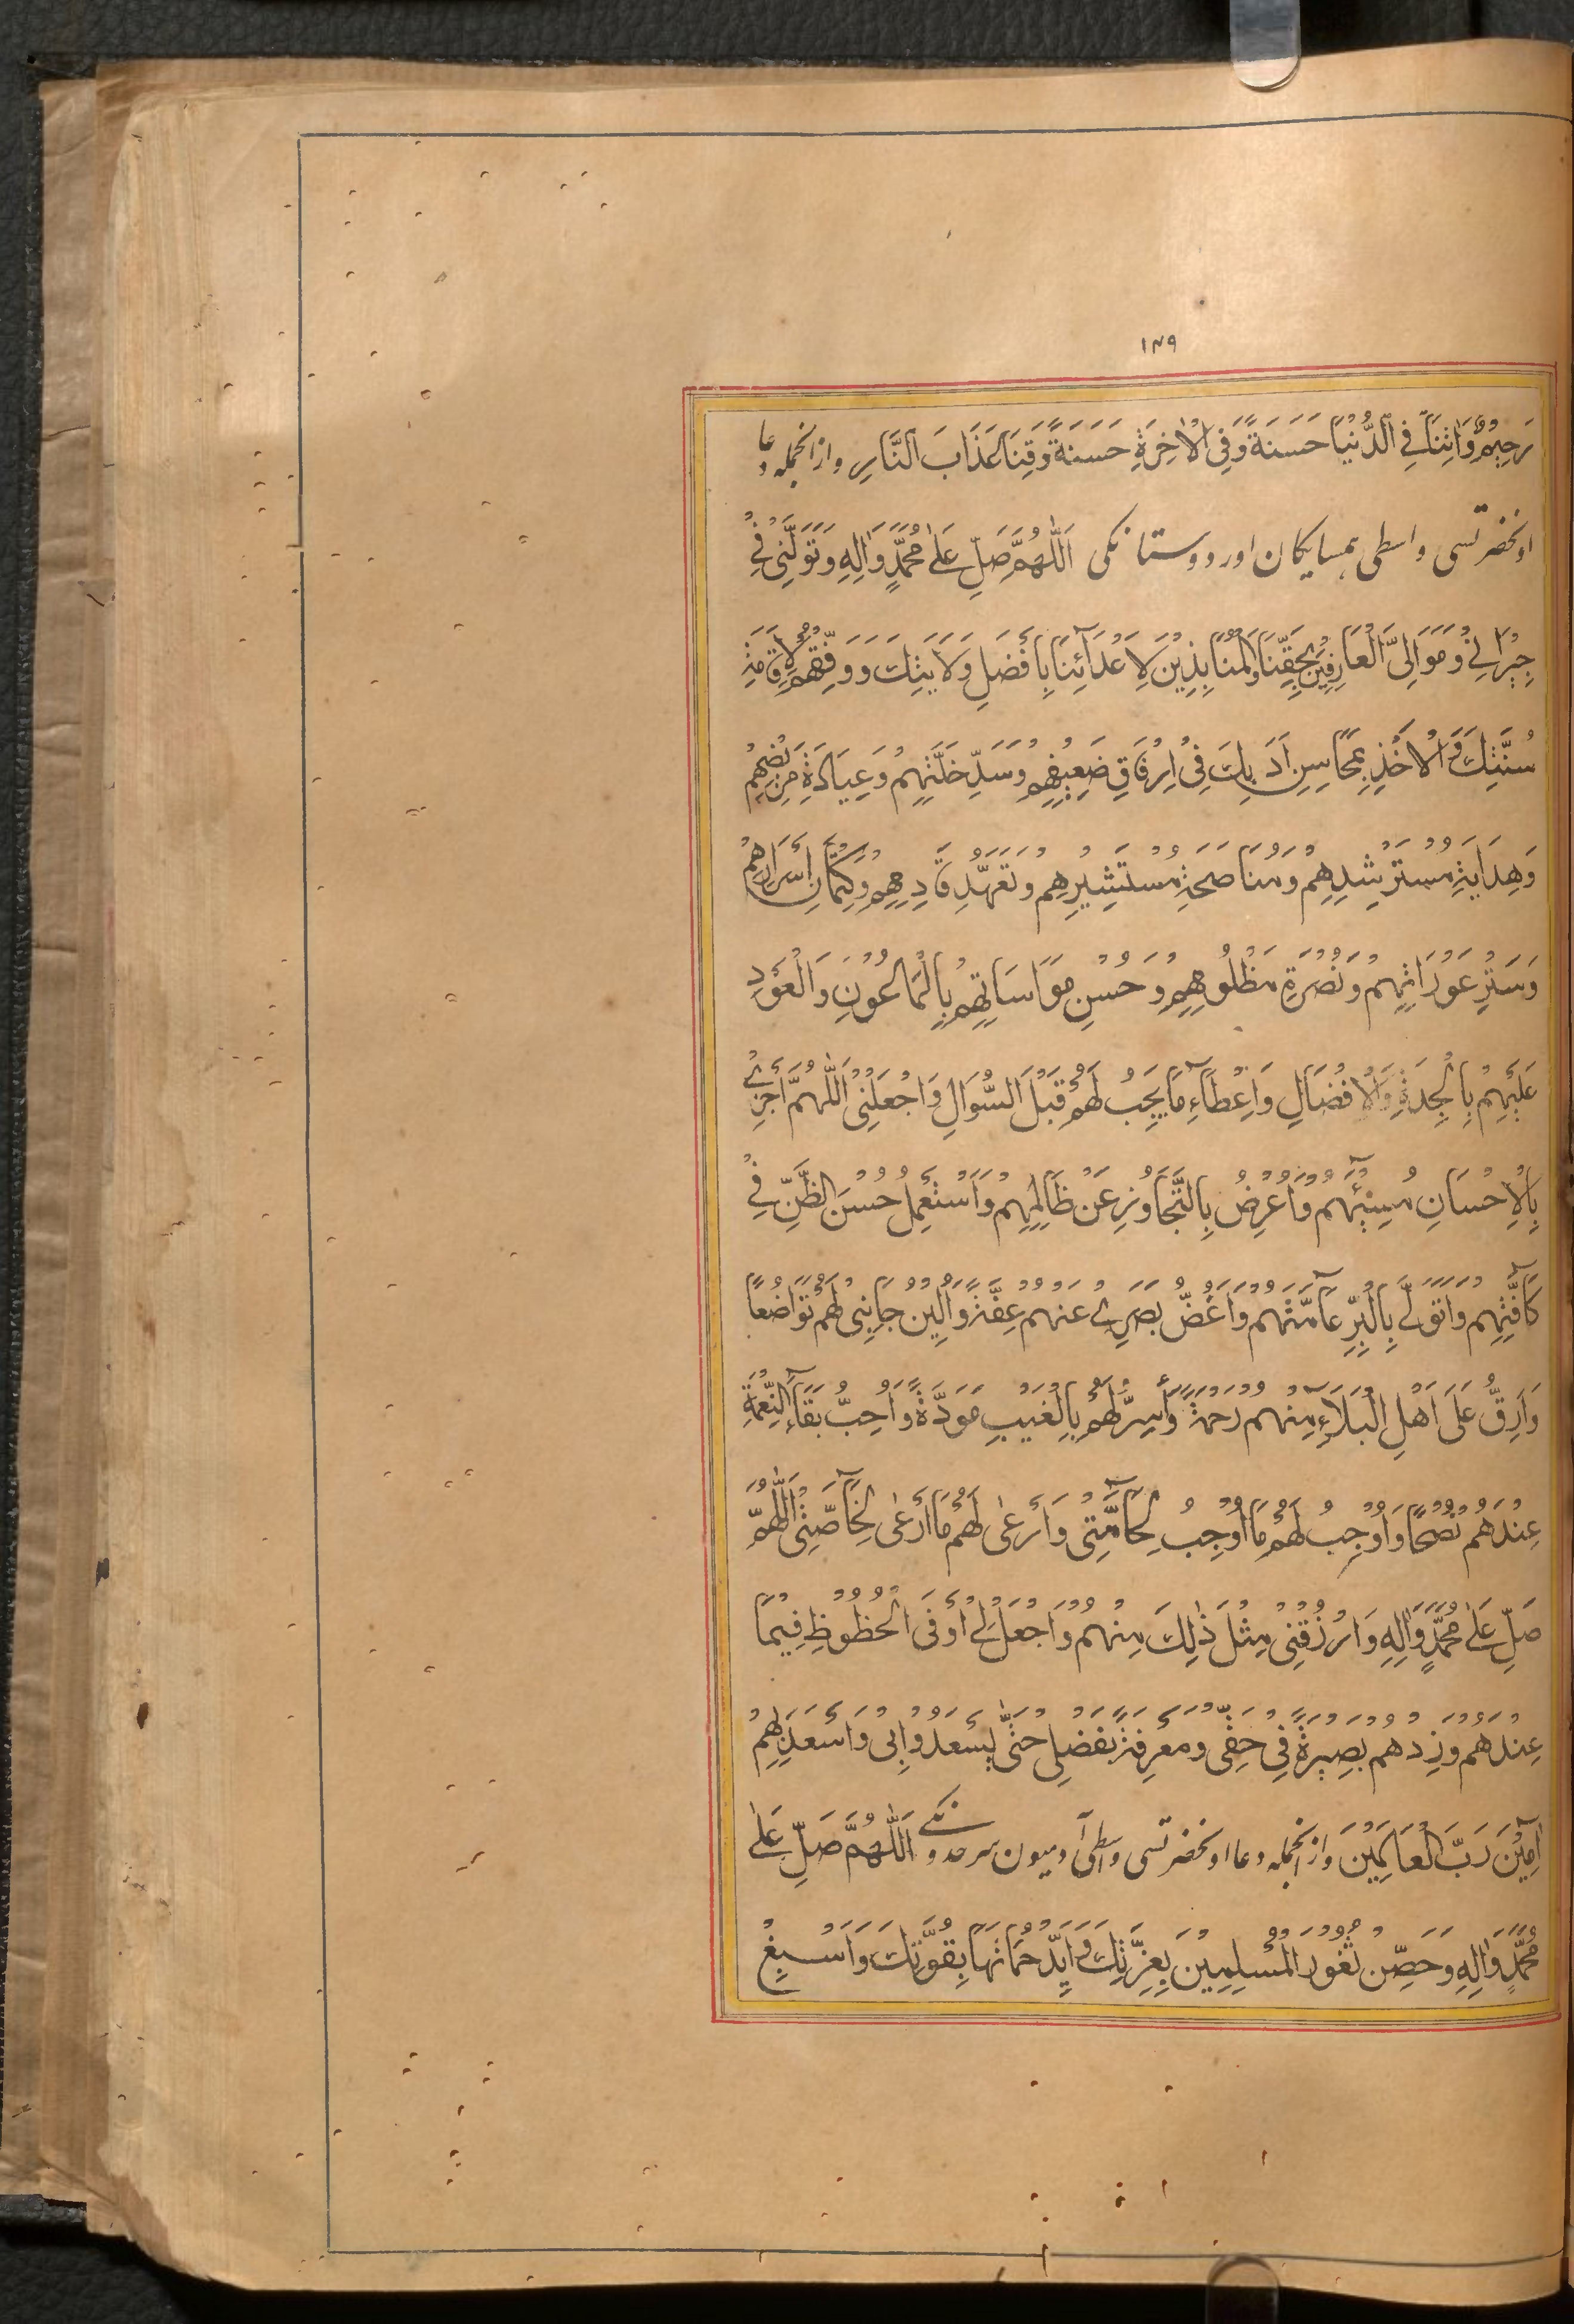 ١٤٩
رَحِيْمٌ وَاٰتِنَا فِي الدُّنْيَا حَسَنَةً وَفِي الْاٰخِرَةِ حَسَنَةً وَقِنَا عَذَابَ النَّارِ وازانجمله دعا
اونحضرتسی واسطی همسایکان اور دوستانکی اَللّٰهُمَّ صَلِّ عَلٰى مُحَمَّدٍ وَاٰلِهِ وَتَوَلَّنِيْ فِيْ
جِيْرَانِيْ وَمَوَالِيَّ الْعَارِفِيْنَ بِحَقِّنَا وَالْمُنَابِذِيْنَ لِاَعْدَآئِنَا بِاَفْضَلِ وَلَايَتِكَ وَوَفِّقْهُمْ لِاِقَامَةِ
سُنَّتِكَ وَالْاَخْذِ بِمَحَاسِنِ اَدَبِكَ فِيْ اِرْفَاقِ ضَعِيْفِهِمْ وَسَدِّ خَلَّتِهِمْ وَعِيَادَةِ مَرِيْضِهِمْ
وَهِدَايَةِ مُسْتَرْشِدِهِمْ وَمُنَاصَحَةِ مُسْتَشِيْرِهِمْ وَتَعَهُّدِ قَادِمِهِمْ وَكِتْمَانِ اَسْرَارِهِمْ
وَسَتْرِ عَوْرَاتِهِمْ وَنُصْرَةِ مَظْلُوْمِهِمْ وَحُسْنِ مَوَاسَاتِهِمْ بِالْمَاعُوْنِ وَالْعَوْدِ
عَلَيْهِمْ بِالْجِدَةِ وَالْاِفْضَالِ وَاِعْطَآءِ مَا يَجِبُ لَهُمْ قَبْلَ السُّوَالِ وَاجْعَلْنِيْ اَللّٰهُمَّ اَجْزِيْ
بِالْاِحْسَانِ مُسِيْئَهُمْ وَاُعْرِضُ بِالتَّجَاوُزِ عَنْ ظَالِمِهِمْ وَاَسْتَعْمِلُ حُسْنَ الظَّنِّ فِيْ
كَآفَّتِهِمْ وَاَتَوَلّٰى بِالْبِرِّ عَآمَّتَهُمْ وَاَغُضُّ بَصَرِيْ عَنْهُمْ عِفَّةً وَاُلِيْنُ جَانِبِيْ لَهُمْ تَوَاضُعًا
وَاَرِقُّ عَلَى اَهْلِ الْبَلَآءِ مِنْهُمْ رَحْمَةً وَاُسِرُّ لَهُمْ بِالْغَيْبِ مَوَدَّةً وَاُحِبُّ بَقَآءَ النِّعْمَةِ
عِنْدَهُمْ نُصْحًا وَاُوْجِبُ لَهُمْ مَا اُوْجِبُ لِحَآمَّتِيْ وَاَرْعٰى لَهُمْ مَا اَرْعٰى لِخَآصَّتِيْ اَللّٰهُمَّ
صَلِّ عَلٰى مُحَمَّدٍ وَاٰلِهِ وَارْزُقْنِيْ مِثْلَ ذٰلِكَ مِنْهُمْ وَاجْعَلْ لِيْ اَوْفَى الْحُظُوْظِ فِيْمَا
عِنْدَهُمْ وَزِدْهُمْ بَصِيْرَةً فِيْ حَقِّيْ وَمَعْرِفَةً بِفَضْلِيْ حَتّٰى يَسْعَدُوْا بِيْ وَاَسْعَدَ بِهِمْ
اٰمِيْنَ رَبَّ الْعَالَمِيْنَ وازانجمله دعا اونحضرتسی واسطی آدمیون سرحدونکے اَللّٰهُمَّ صَلِّ عَلٰى
مُحَمَّدٍ وَاٰلِهِ وَحَصِّنْ ثُغُوْرَ الْمُسْلِمِيْنَ بِعِزَّتِكَ وَاَيِّدْ حُمَاتَهَا بِقُوَّتِكَ وَاَسْبِغْ